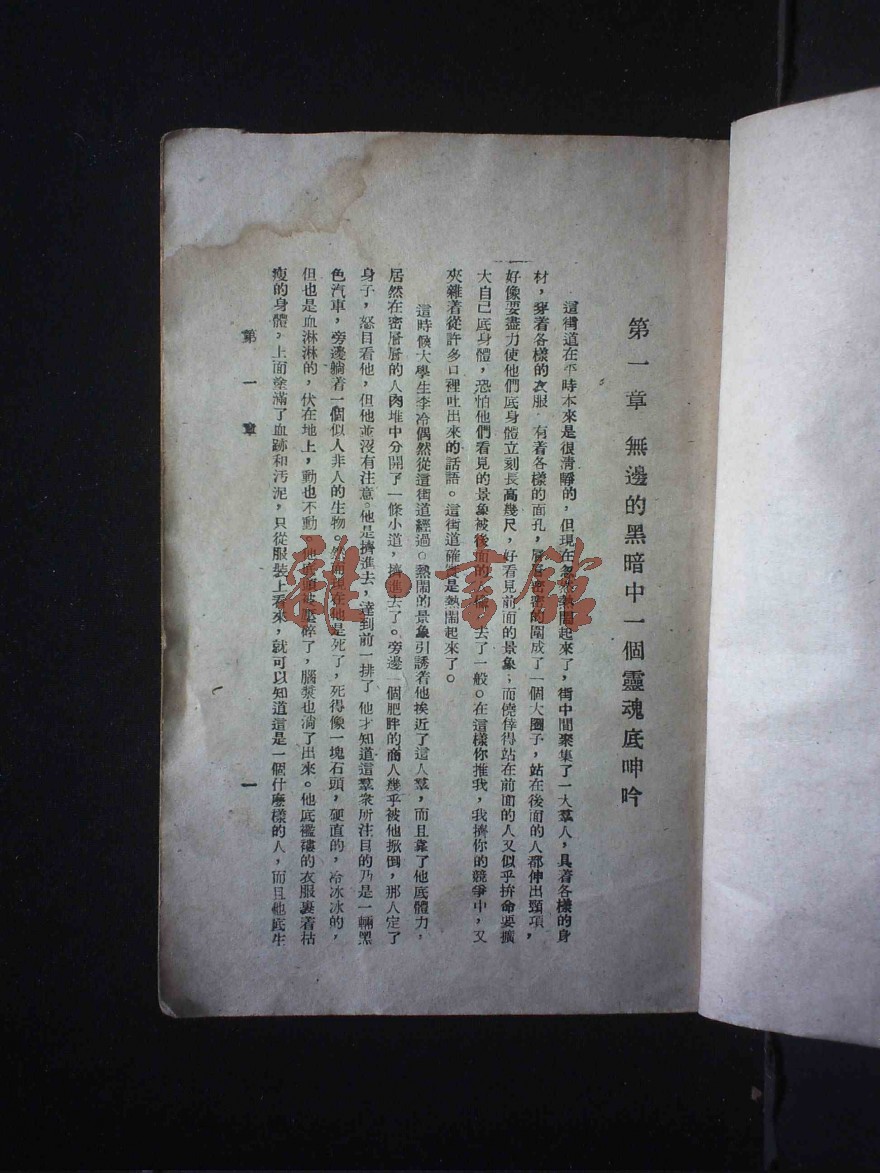 第一章 無邊的黑暗中一個靈魂底呻吟
這街道在平時本來是很淸靜的，但現在忽然熱鬧起來了，街中間聚集了一大羣人，具着各樣的身
材，穿着各樣的衣服 有着各樣的面孔，層層密密的圍成了一個大圈子，站在後面的人都伸出頸項，
好像要盡力使他們底身體立刻長高幾尺，好看見前面的景象；而僥倖得站在前面的人又似乎拚命要擴
大自己底身體，恐怕他們看見的景象被後面的人搶 去了一般。在這樣你推我，我擠你的競爭中，又
夾雜着從許多口裡吐出來的話語。這街道確實是熱鬧起來了。
這時候大學生李冷偶然從這街道經過。熱鬧的景象引誘着他挨近了這人羣，而且靠了他底體力，
居然在密層層的人肉堆中分開了一條小道，擠進去了。旁邊一個肥胖的商人幾乎被他掀倒，那人定了
身子，怒目看他，但他並沒有注意。他是擠進去，達到前一排了 他才知道這羣衆所注目的乃是一輛黑
色汽車，旁邊躺着一個似人非人的生物 然而現在他是死了，死得像一塊石頭，硬直的，冷冰冰的，
但也是血淋淋的，伏在地上，動也不動 他底頭被壓碎了，腦漿也淌了出來。他底襤褸的衣服裹着枯
瘦的身體，上面塗滿了血跡和汚泥，只從服裝上看來，就可以知道這是一個什麼樣的人，而且他底生
第一章 一
雜·書館